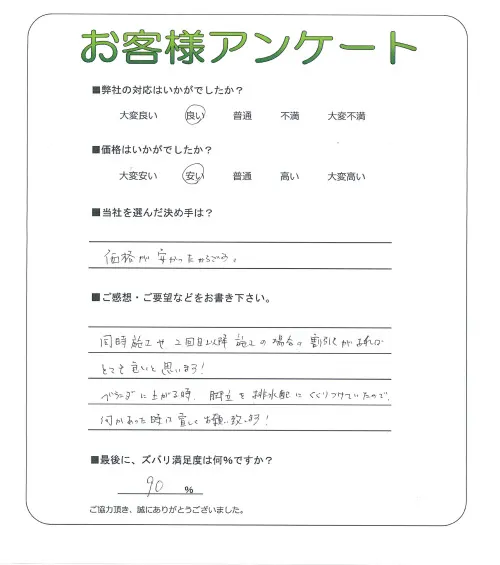 お客様アンケート
■弊社の対応はいかがでしたか？
大変良い 良い 普通 不満 大変不満
■価格はいかがでしたか？
大変安い 安い 普通 高い 大変高い
■当社を選んだ決め手は？
価格が安かったからです。
■ご感想・ご要望などをお書き下さい。
同時施工や2回目以降施工の場合の割引があれば
とても良いと思います！
ベランダに上がる時、脚立を排水配にくくりつけていたので、
何かあった時は宜しくお願い致します！
■最後に、ズバリ満足度は何％ですか？
90 %
ご協力頂き、誠にありがとうございました。